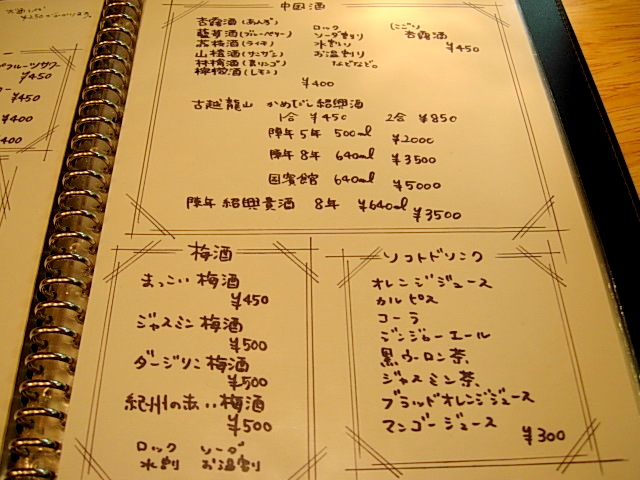 ¥450
¥450
¥400
400
中国酒
杏露酒(あんず)
藍苺酒(ブルーベリー)
茘枝酒(ライチ)
山楂酒(サンザシ)
林檎酒(青リンゴ)
檸檬酒(レモン)
ロック
ソーダ割り
水割り
お湯割り
などなど。
¥400
にごり
杏露酒
¥450
古越龍山 かめだし紹興酒
1合 ¥450 2合 ¥850
陳年5年 500ml ¥2000
陳年8年 640ml ¥3500
国賓館 640ml ¥5000
陳年 紹興貴酒 8年 ¥640ml ¥3500
梅酒
まっこい梅酒
¥450
ジャスミン梅酒
¥500
ダージリン梅酒
¥500
紀州の赤い梅酒
¥500
ロック ソーダ
水割 お湯割
ソフトドリンク
オレンジジュース
カルピス
コーラ
ジンジャーエール
黒ウーロン茶
ジャスミン茶
ブラッドオレンジジュース
マンゴージュース
¥300